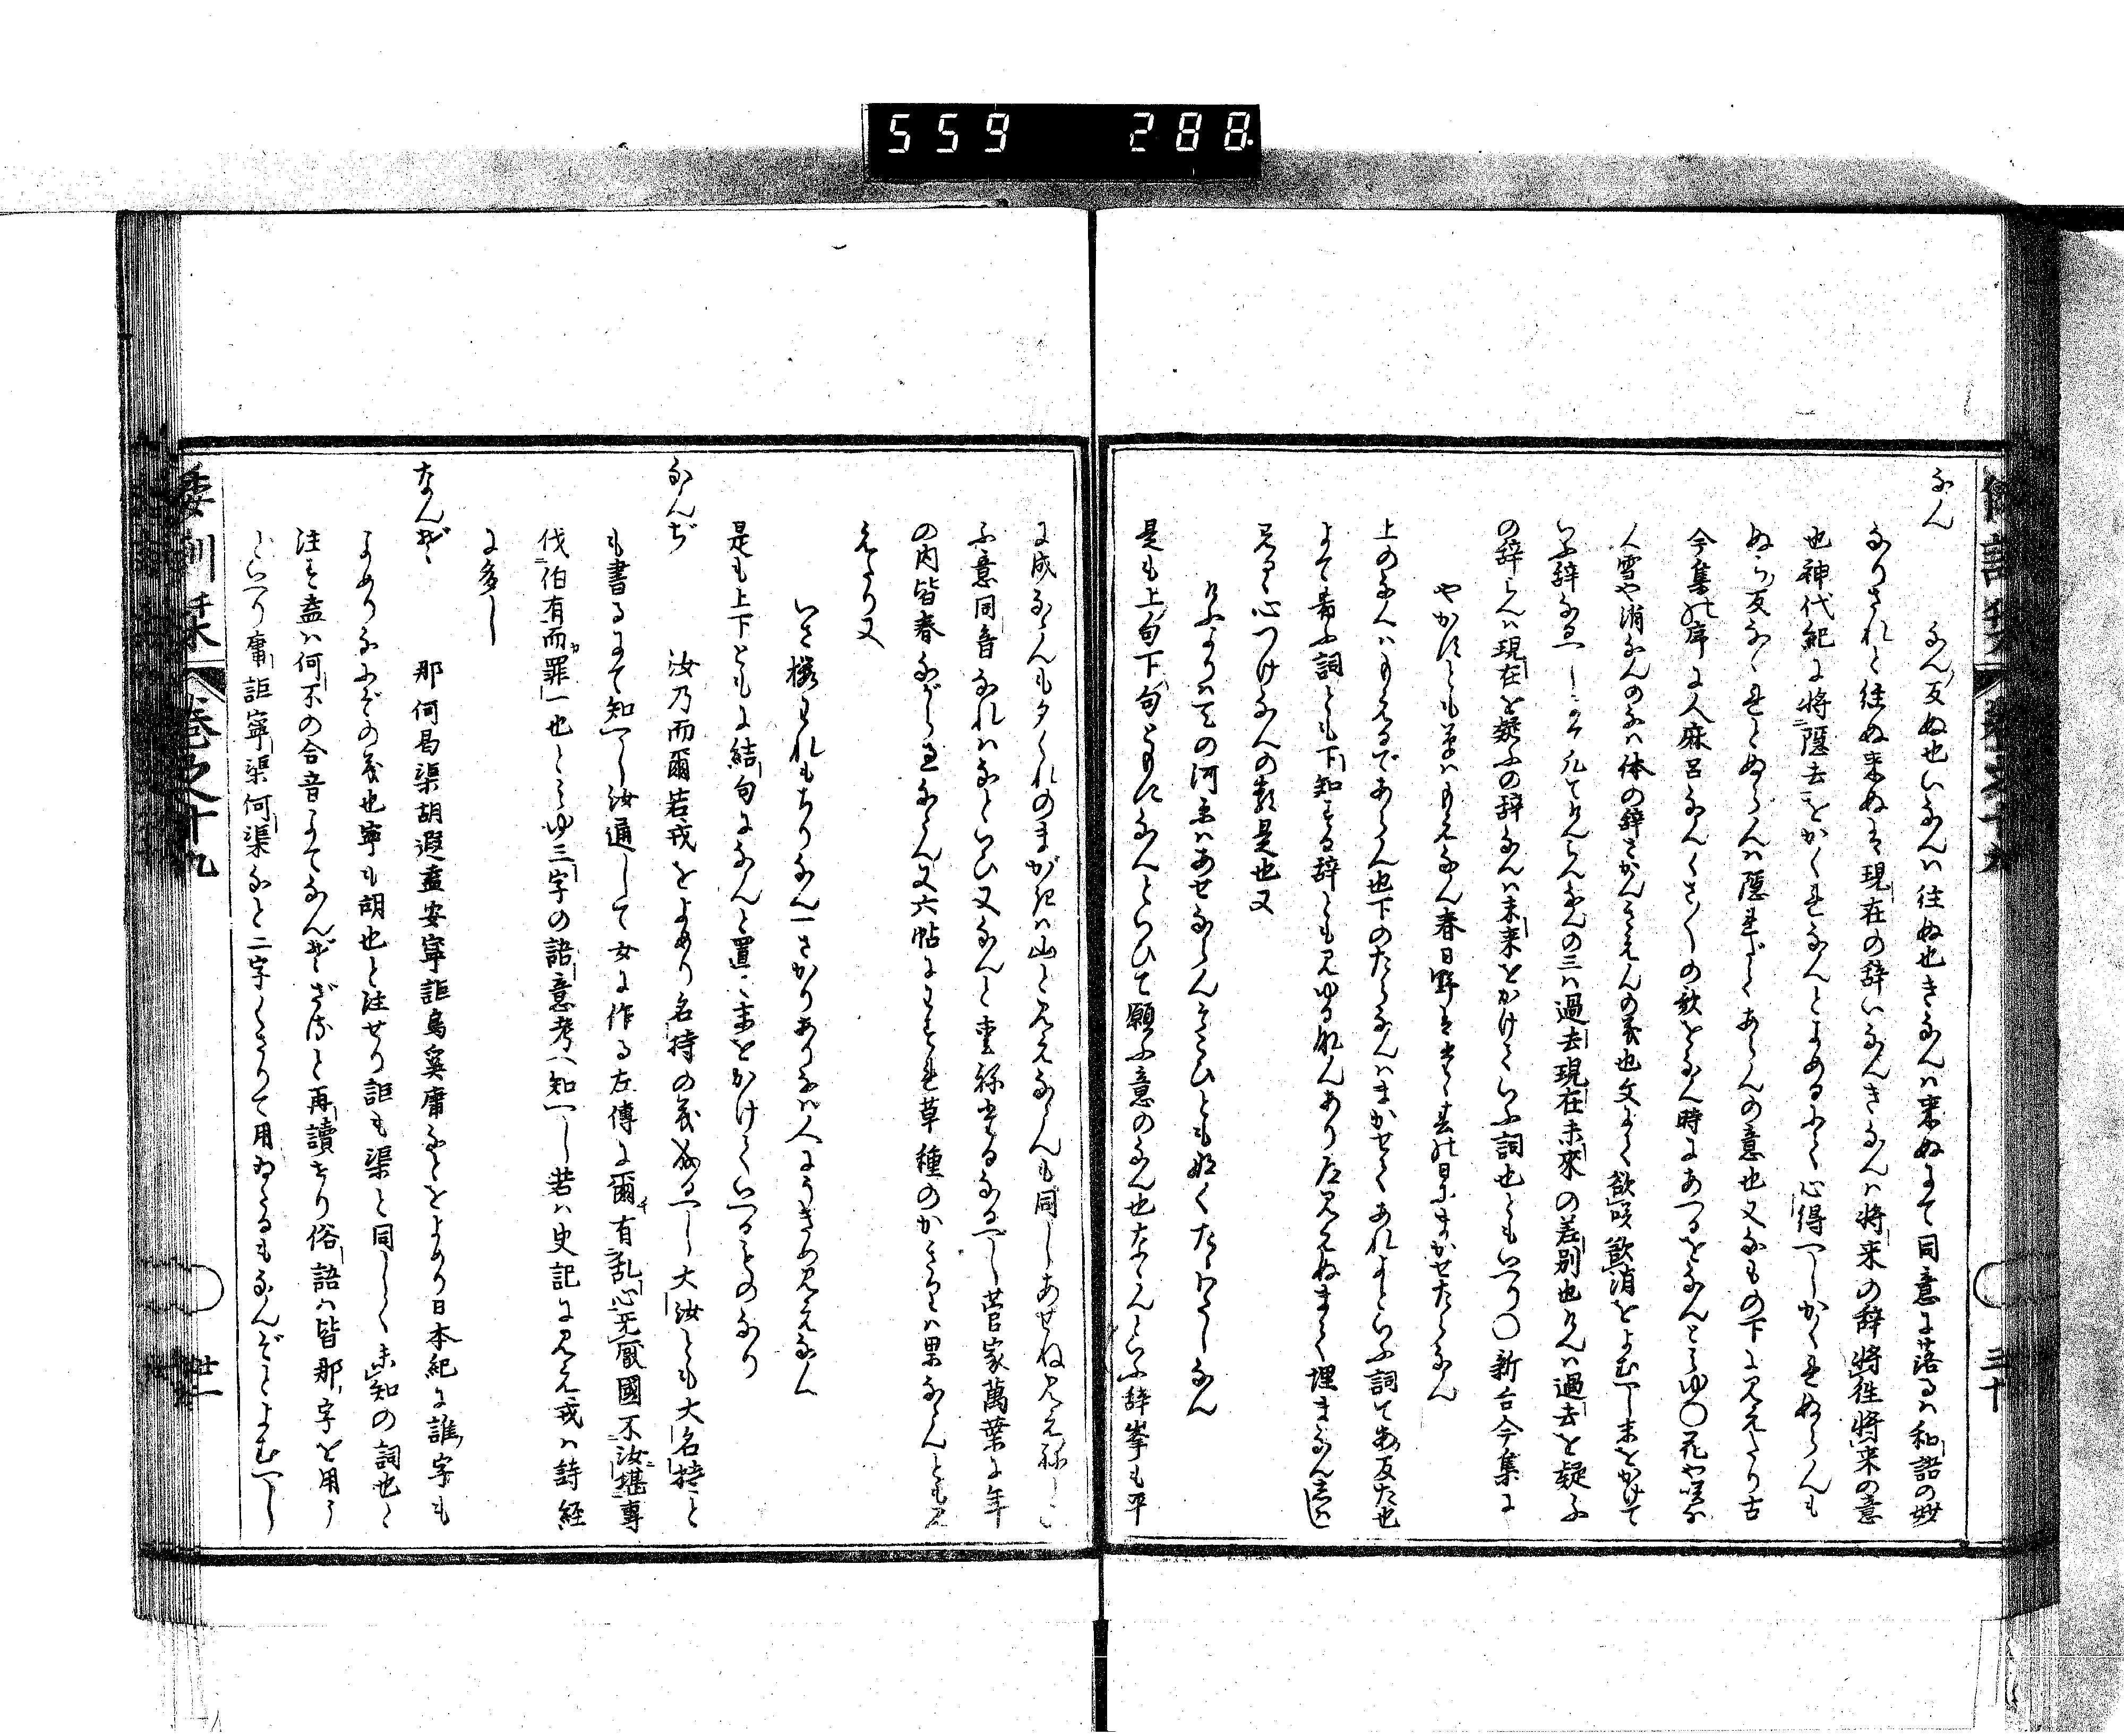 559 288
なん　なん反ぬ也いなんハ往ぬ也きなんハ来ぬにて同意に落るハ和語の妙
なりされと往ぬ来ぬハ現在の辞いなんきなんハ将来の辞将往将来の意
也神代紀に将隠去をかくれなんとよめるにて心得へしかくれぬらんも
ぬら反なくれはぬらんハ隠れてあらんの意也又なもの下に見えたり古
今集の序に人麻呂なんくさくの歌をなん時にあへるをなんとみゆ〇花や咲な
ん雪や消なんのなハ体の辞さかんきえんの義也文よく欲咲欲消をよむへし末をかけて
いふ辞なるへし又凡てけんらんなんの三ハ過去現在未来の差別也けんハ過去を疑ふ
の辞らんハ現在を疑ふの辞なんハ未来をかけていふ詞也ともいへり〇新古今集に
やかすとも草ハもえなん春日野をたゝ春の日にまかせたらなん
上のなんハもえるであらん也下のたらなんハまかせてあれよといふ詞てあ反た也
よて希ふ詞とも下知する辞とも見ゆるなんあり尾見えぬまて埋まなん道を
見るく心つけなんの類是也又
けふよりハ天の河原ハあせなゝんそこひともなくたゝわたしなん
是も上句下句ともになんといひて願ふ意のなん也なゝんといふ辞峯も平
に成なゝんも夕くれのまかきハ山と見えなゝんも同しあせね見えねと
ふ意同音なれハなといひ又なんと重ね出るなるへし菅家萬葉に年
の内皆春なから過なゝん又六帖にわすれ草種のかきりハ果なゝんとも見
えたり又
いさ桜われもちりなん一さかりありなハ人にうきめ見えなん
是も上下ともに結句になんと置て末をかけていへるものなり
なんぢ　汝乃而爾若戎をよめり名持の義なるへし大汝とも大名持と
も書るにて知へし汝通して女に作る左傳に爾有乱心无厭國不汝堪専
伐伯有而罪一也とみゆ三字の語意考へ知へし若ハ史記に見え戎ハ詩経
に多し
なんぞ　那何曷渠胡遐盍安寧詎烏奚庸なとをよめり日本紀に誰字も
よめりなにぞの義也寧も胡也と注せり詎も渠と同しく未知の詞也と
注す盍ハ何不の合音よてなんぞざると再讀せり俗語ハ皆那字を用う
といへり庸詎寧渠何渠なと二字くさりて用ゐたるもなんぞとよむへし
倭訓栞　巻之十九　三十
倭訓栞　巻之十九　廿一